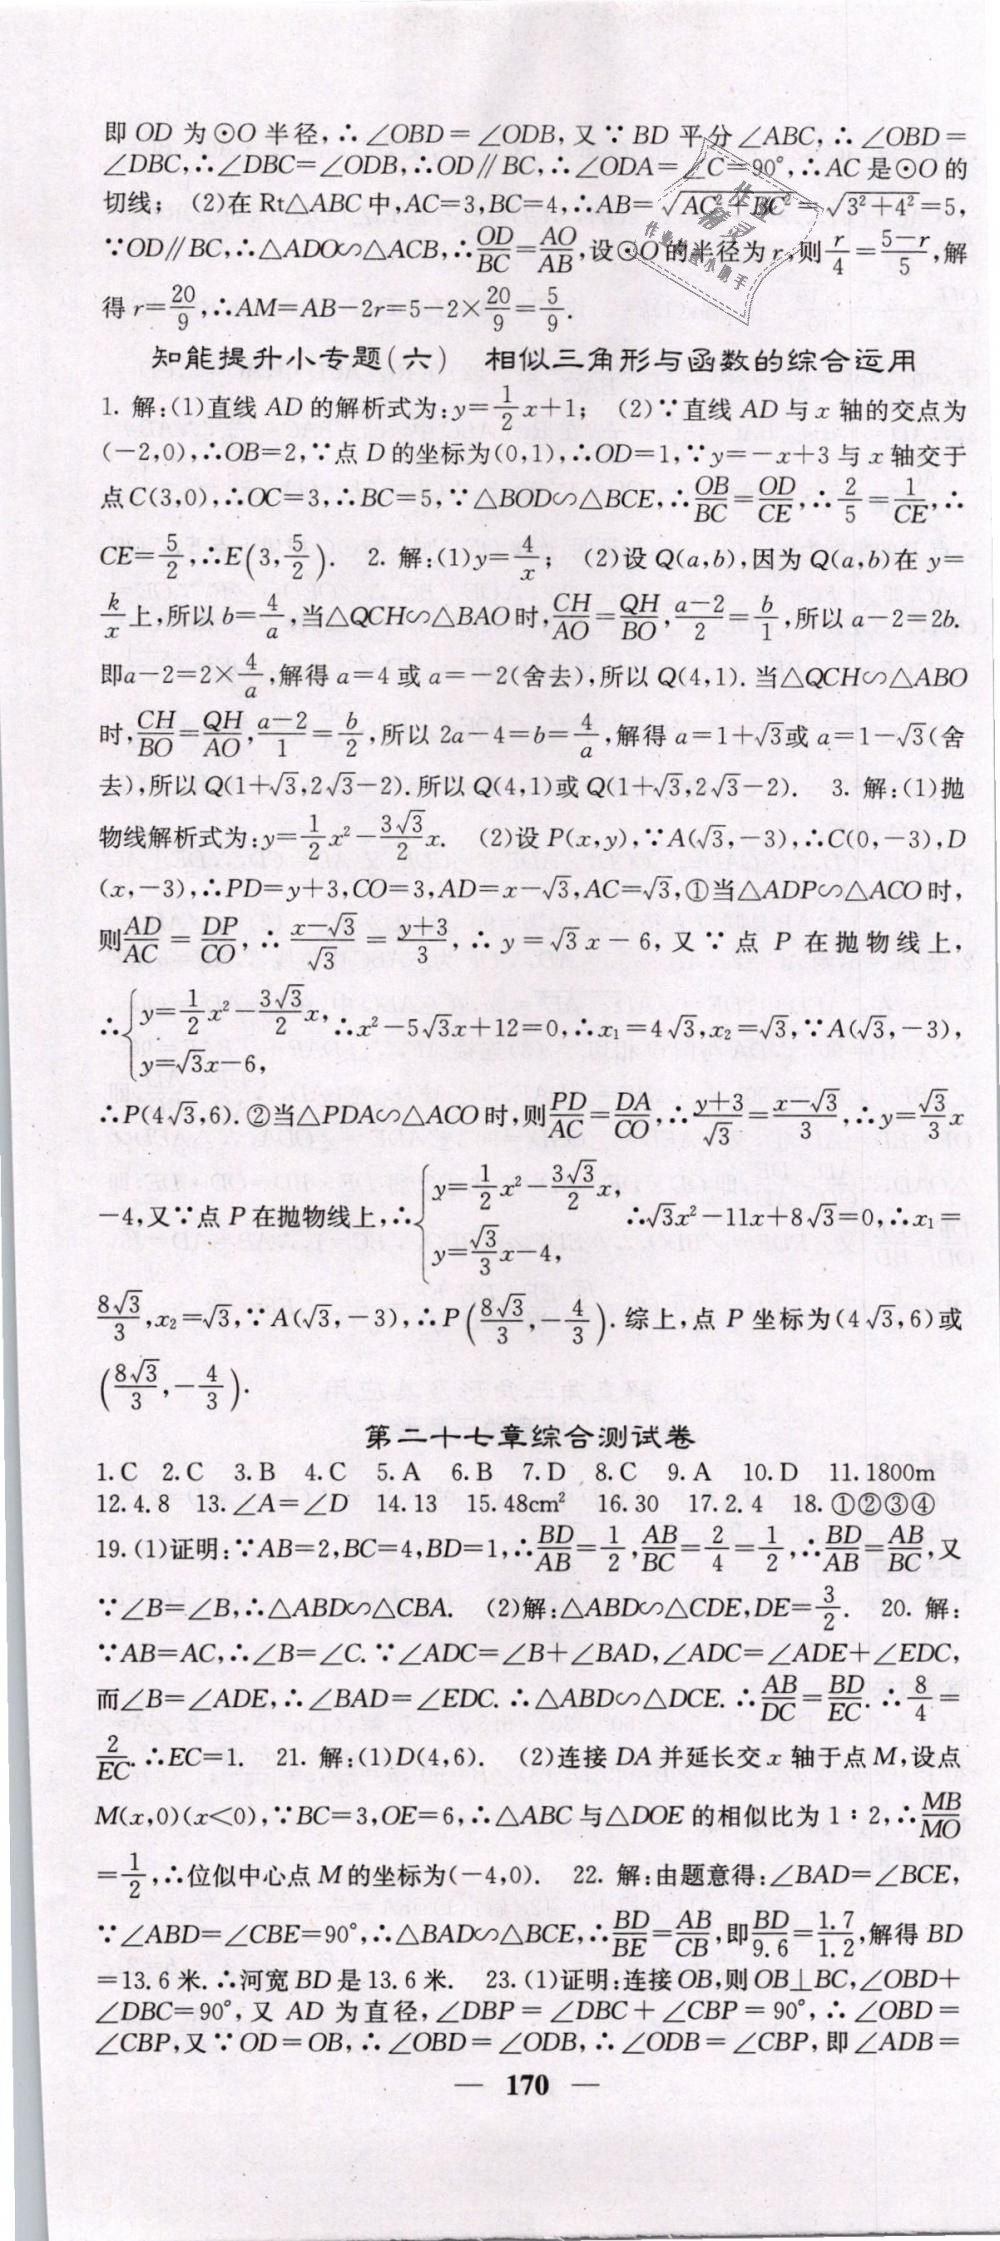 即 OD 为 ⊙O 半径,∴∠OBD=∠ODB,又∵BD 平分∠ABC,∴∠OBD=
∠DBC,∴∠DBC=∠ODB,∴OD∥BC,∴∠ODA=∠C=90°,∴AC 是⊙O 的
切线; (2)在 Rt△ABC 中,AC=3,BC=4,∴AB=√(AC²+BC²)=√(3²+4²)=5,
∵OD∥BC,∴△ADO∽△ACB,∴OD/BC=AO/AB,设⊙O 的半径为 r,则 r/4=(5-r)/5,解
得 r=20/9,∴AM=AB-2r=5-2×20/9=5/9.
知能提升小专题(六) 相似三角形与函数的综合运用
1. 解:(1)直线 AD 的解析式为:y=1/2x+1; (2)∵直线 AD 与 x 轴的交点为
(-2,0),∴OB=2,∵点 D 的坐标为(0,1),∴OD=1,∵y=-x+3 与 x 轴交于
点 C(3,0),∴OC=3,∴BC=5,∵△BOD∽△BCE,∴OB/BC=OD/CE,∴2/5=1/CE,∴
CE=5/2,∴E(3,5/2). 2. 解:(1)y=4/x; (2)设 Q(a,b),因为 Q(a,b)在 y=
k/x上,所以 b=4/a,当△QCH∽△BAO 时,CH/AO=QH/BO,(a-2)/2=b/1,所以 a-2=2b.
即a-2=2×4/a,解得 a=4 或 a=-2(舍去),所以 Q(4,1). 当△QCH∽△ABO
时,CH/BO=QH/AO,(a-2)/1=b/2,所以 2a-4=b=4/a,解得 a=1+√3或 a=1-√3(舍
去),所以 Q(1+√3,2√3-2).所以 Q(4,1)或 Q(1+√3,2√3-2). 3. 解:(1)抛
物线解析式为:y=1/2x²-3√3/2x. (2)设 P(x,y),∵A(√3,-3),∴C(0,-3),D
(x,-3),∴PD=y+3,CO=3,AD=x-√3,AC=√3,①当△ADP∽△ACO 时,
则AD/AC=DP/CO,∴(x-√3)/√3=(y+3)/3,∴y=√3x-6,又∵点 P 在抛物线上,
∴{y=1/2x²-3√3/2x, y=√3x-6,∴x²-5√3x+12=0,∴x₁=4√3,x₂=√3,∵A(√3,-3),
∴P(4√3,6). ②当△PDA∽△ACO 时,则PD/AC=DA/CO,∴(y+3)/√3=(x-√3)/3,∴y=√3/3x
-4,又∵点 P 在抛物线上,∴{y=1/2x²-3√3/2x, y=√3/3x-4, ∴√3x²-11x+8√3=0,∴x₁=
8√3/3,x₂=√3,∵A(√3,-3),∴P(8√3/3,-4/3). 综上,点 P 坐标为(4√3,6)或
(8√3/3,-4/3).
第二十七章综合测试卷
1.C 2.C 3.B 4.C 5.A 6.B 7.D 8.C 9.A 10.D 11.1800m
12.4.8 13.∠A=∠D 14.13 15.48cm² 16.30 17.2.4 18.①②③④
19.(1)证明:∵AB=2,BC=4,BD=1,∴BD/AB=1/2,AB/BC=2/4=1/2,∴BD/AB=AB/BC,又
∵∠B=∠B,∴△ABD∽△CBA. (2)解:△ABD∽△CDE,DE=3/2. 20. 解:
∵AB=AC,∴∠B=∠C.∵∠ADC=∠B+∠BAD,∠ADC=∠ADE+∠EDC,
而∠B=∠ADE,∴∠BAD=∠EDC.∴△ABD∽△DCE.∴AB/DC=BD/EC.∴8/4=
2/EC.∴EC=1. 21. 解:(1)D(4,6). (2)连接 DA 并延长交 x 轴于点 M,设点
M(x,0)(x<0),∵BC=3,OE=6,∴△ABC 与△DOE 的相似比为 1∶2,∴MB/MO
=1/2,∴位似中心点 M 的坐标为(-4,0). 22. 解:由题意得:∠BAD=∠BCE,
∵∠ABD=∠CBE=90°,∴△BAD∽△BCE,∴BD/BE=AB/CB,即BD/9.6=1.7/1.2,解得 BD
=13.6 米.∴河宽 BD 是 13.6 米. 23.(1)证明:连接 OB,则 OB⊥BC,∠OBD+
∠DBC=90°,又 AD 为直径,∠DBP=∠DBC+∠CBP=90°,∴∠OBD=
∠CBP,又∵OD=OB,∴∠OBD=∠ODB,∴∠ODB=∠CBP,即∠ADB=
— 170 —